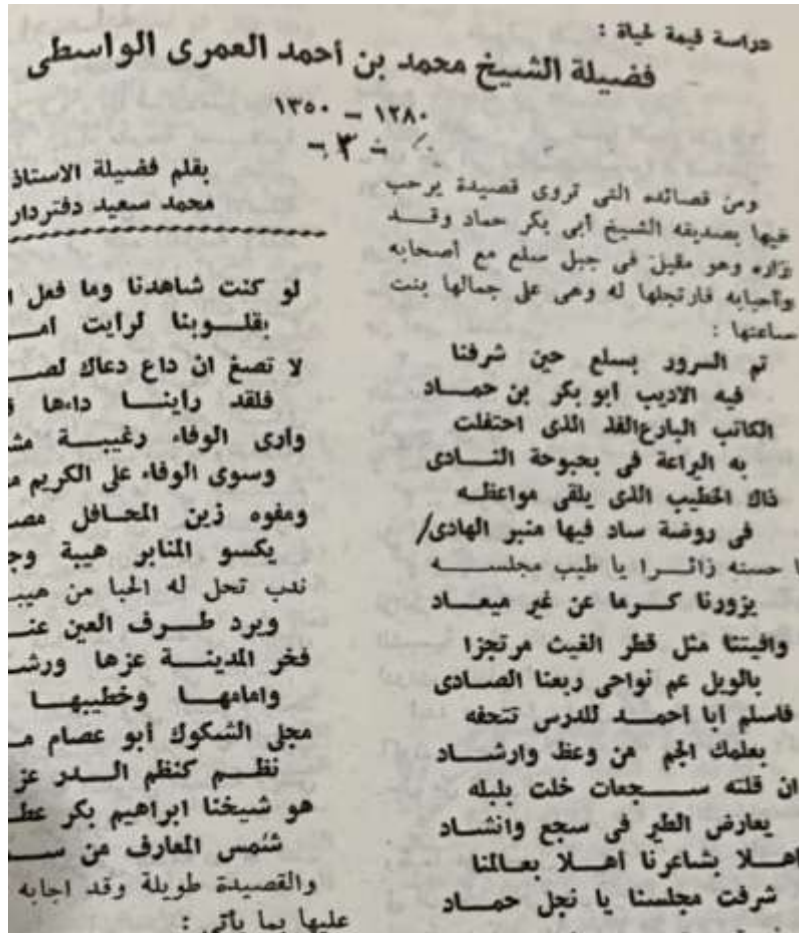 دراسة قيمة لحياة :
فضيلة الشيخ محمد بن أحمد العمرى الواسطى
١٢٨٠ - ١٣٥٠
- ٣ -
بقلم فضيلة الاستاذ
محمد سعيد دفتردار
ومن قصائده التى تروى قصيدة يرحب
فيها بصديقه الشيخ أبى بكر حماد وقد
زاره وهو مقيل فى جبل سلع مع أصحابه
وأحبابه فارتجلها له وهى على جمالها بنت
ساعتها :
تم السرور بسلع حين شرفنا
فيه الاديب ابو بكر بن حماد
الكاتب البارع الفذ الذى احتفلت
به البراعة فى بحبوحة النادى
ذاك الخطيب الذى يلقى مواعظه
فى روضة ساد فيها منبر الهادى/
حسنه زائرا يا طيب مجلسه
يزورنا كرما عن غير ميعاد
وافيتنا مثل قطر الغيث مرتجزا
بالويل عم نواحى ربعنا الصادى
فاسلم ابا احمد للدرس تتحفه
بعلمك الجم من وعظ وارشاد
ان قلته سجعات خلت بلبله
يعارض الطير فى سجع وانشاد
اهلا بشاعرنا اهلا بعالمنا
شرفت مجلسنا يا نجل حماد
لو كنت شاهدنا وما فعل
بقلوبنا لرايت
لا تصغ ان داع دعاك
فلقد راينا داءها
وارى الوفاء رغيبة
وسوى الوفاء على الكريم
ومفوه زين المحافل
يكسو المنابر هيبة
ندب تحل له الحبا من
ويرد طرف العين
فخر المدينة عزها
وامامها وخطيبها
مجلى الشكوك أبو عصام
نظم كنظم الدر عز
هو شيخنا ابراهيم بكر
شمس المعارف من
والقصيدة طويلة وقد اجابه
عليها بما يأتى :